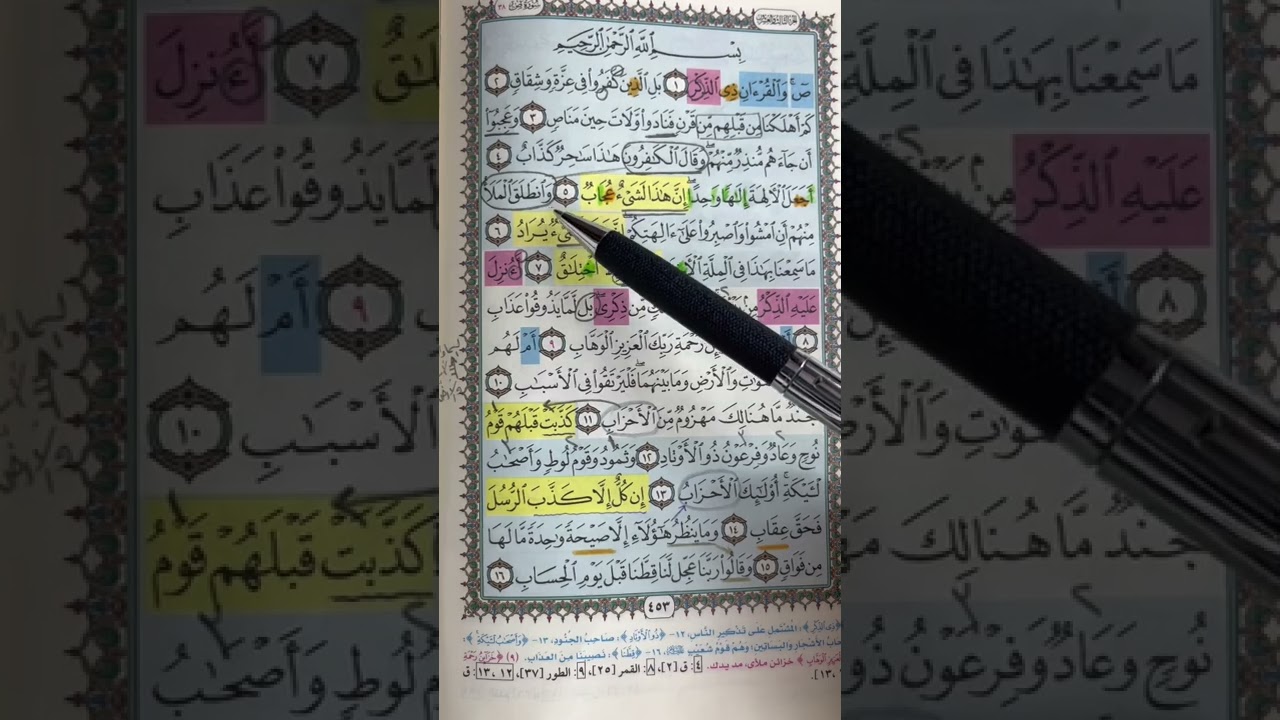 سورة ص ٣٨
بِسْمِ ٱللَّهِ ٱلرَّحْمَٰنِ ٱلرَّحِيمِ
صٓ وَٱلْقُرْءَانِ ذِى ٱلذِّكْرِ ١ بَلِ ٱلَّذِينَ كَفَرُوا۟ فِى عِزَّةٍ وَشِقَاقٍ ٢
كَمْ أَهْلَكْنَا مِن قَبْلِهِم مِّن قَرْنٍ فَنَادَوا۟ وَّلَاتَ حِينَ مَنَاصٍ ٣ وَعَجِبُوٓا۟
أَن جَآءَهُم مُّنذِرٌ مِّنْهُمْ ۖ وَقَالَ ٱلْكَٰفِرُونَ هَٰذَا سَٰحِرٌ كَذَّابٌ ٤
أَجَعَلَ ٱلْءَالِهَةَ إِلَٰهًا وَٰحِدًا ۖ إِنَّ هَٰذَا لَشَىْءٌ عُجَابٌ ٥ وَٱنطَلَقَ ٱلْمَلَأُ
مِنْهُمْ أَنِ ٱمْشُوا۟ وَٱصْبِرُوا۟ عَلَىٰٓ ءَالِهَتِكُمْ يُرَادُ ٦
مَا سَمِعْنَا بِهَٰذَا فِى ٱلْمِلَّةِ ٱخْتِلَٰقٌ ٧ أَءُنزِلَ
عَلَيْهِ ٱلذِّكْرُ مِنۢ مِّن ذِكْرِى ۖ بَل لَّمَّا يَذُوقُوا۟ عَذَابِ
٨ رَحْمَةِ رَبِّكَ ٱلْعَزِيزِ ٱلْوَهَّابِ ٩ أَمْ لَهُم
وَٱلْأَرْضِ وَمَا بَيْنَهُمَا ۖ فَلْيَرْتَقُوا۟ فِى ٱلْأَسْبَٰبِ ١٠
جُندٌ مَّا هُنَالِكَ مَهْزُومٌ مِّنَ ٱلْأَحْزَابِ ١١ كَذَّبَتْ قَبْلَهُمْ قَوْمُ
نُوحٍ وَعَادٌ وَفِرْعَوْنُ ذُو ٱلْأَوْتَادِ ١٢ وَثَمُودُ وَقَوْمُ لُوطٍ وَأَصْحَٰبُ
لْـَٔيْكَةِ ۚ أُو۟لَٰٓئِكَ ٱلْأَحْزَابُ ١٣ إِن كُلٌّ إِلَّا كَذَّبَ ٱلرُّسُلَ
فَحَقَّ عِقَابِ ١٤ وَمَا يَنظُرُ هَٰٓؤُلَآءِ إِلَّا صَيْحَةً وَٰحِدَةً مَّا لَهَا
مِن فَوَاقٍ ١٥ وَقَالُوا۟ رَبَّنَا عَجِّل لَّنَا قِطَّنَا قَبْلَ يَوْمِ ٱلْحِسَابِ ١٦
٤٥٣
﴿ذِي الذِّكْرِ﴾: المُشْتَمِلِ على تَذْكِيرِ النَّاسِ، ١٢- ﴿ذُو الْأَوْتَادِ﴾: صَاحِبُ الجُنُودِ، ١٣- ﴿وَأَصْحَابُ لْأَيْكَةِ﴾:
الأَشْجَارِ والبَسَاتِينِ؛ وَهُمْ قَوْمُ شُعَيْبٍ، ١٦- ﴿قِطَّنَا﴾: نَصِيبَنَا مِنَ العَذَابِ. (٩) ﴿خَزَائِنُ رَحْمَةِ
الْوَهَّابِ﴾ خزائن ملأى، مد يدك. ٤: ق [٢]، ٨: القمر [٢٥]، ٩: الطور [٣٧]، ١٢، ١٣: ق